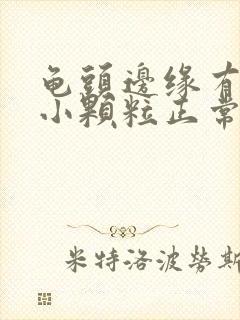 龟頭邊缘有
小顆粒正常
米特洛波勞斯